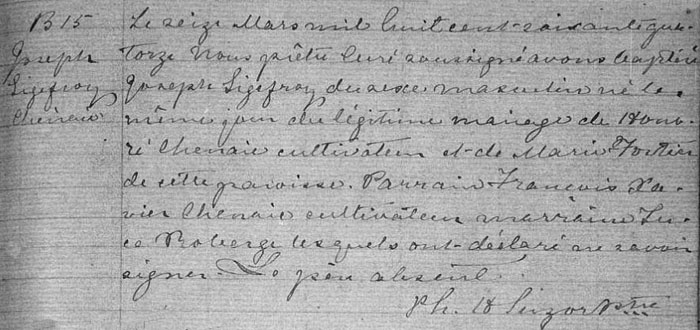 B 15
Joseph
Sigefroy
Chenaie
Le seize Mars mil huit cent soixante quatorze
torze Nous prêtre Curé soussigné avons baptisé
Joseph Sigefroy du sexe masculin né le
même jour du légitime mariage de Hono-
ré Chenaie cultivateur et de Marie Fortier
de cette paroisse. Parrain François Xa-
vier Chenaie cultivateur marraine Lu-
ce Roberge lesquels ont déclaré ne savoir
signer. Le père absent.
Ph. H. Suzor Ptre